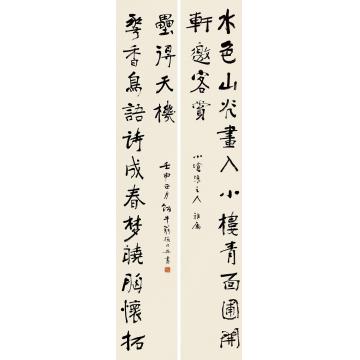 水色山光畫入小樓青面圃開
軒邀客賞
主人 雅屬
香鳥語詩成春梦曉胸懷拓
壘得天機
壬申正月 牛 書